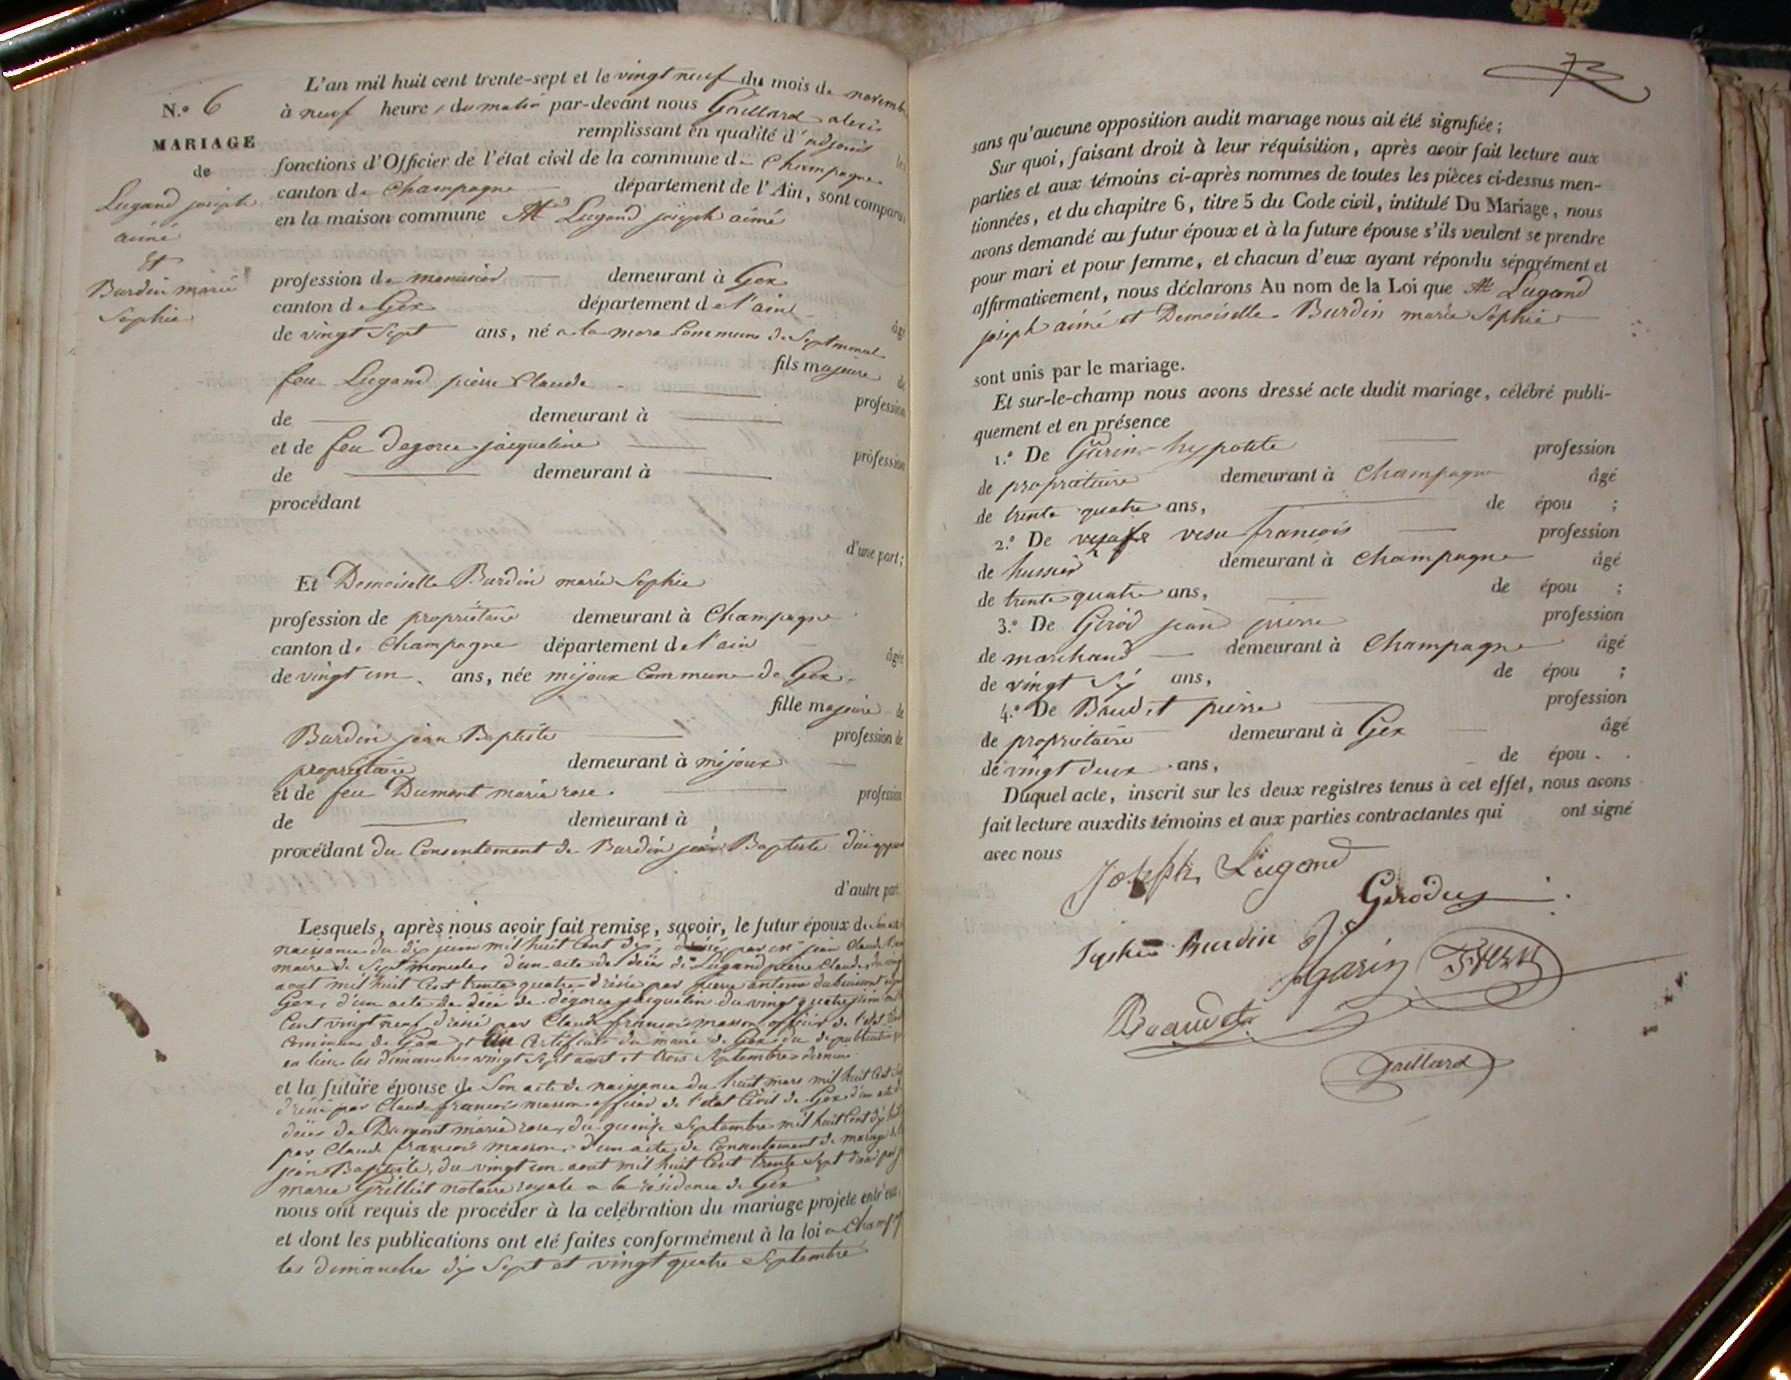 N.º 6
MARIAGE
de
Lugand joseph
aimé
Et
Burdin marie
Sophie
L'an mil huit cent trente-sept et le vingt neuf du mois de novembre
à neuf heures du matin par-devant nous Gaillard alexis
remplissant en qualité d'adjoint les
fonctions d'Officier de l'état civil de la commune de Champagne
canton de Champagne département de l'Ain, sont comparus
en la maison commune Mr Lugand joseph aimé
profession de menuisier demeurant à Gex
canton de Gex département de l'ain
âgé
de vingt Sept ans, né a la mora Commune de Septmoncel
fils majeure de
feu Lugand pierre Claude
profession
de demeurant à
et de feu degorce jacqueline
profession
de demeurant à
procédant
d'une part;
Et Demoiselle Burdin marie Sophie
profession de propriétaire demeurant à Champagne
canton de Champagne département de l'ain
âgée
de vingt un ans, née mijoux Commune de Gex
fille majeure de
Burdin jean Baptiste profession de
propriétaire demeurant à mijoux
et de feu Dumont marie rose profession
de demeurant à
procédant du Consentement de Burdin jean Baptiste
d'autre part.
Lesquels, après nous avoir fait remise, savoir, le futur époux de son acte
naissance du dix juin mil huit Cent dix, par jean Claude
maire de Septmoncel, d'un acte de décès de Lugand pierre Claude, du vingt
aout mil huit Cent trente quatre dréssé par pierre antoine
Gex, d'un acte de décé de degorce jacqueline du vingt quatre
Cent vingt neuf dréssé par Claude françois masson officier de l'etat
Commune de Gex, et un Certificat du maire de Gex de publication
en lieu les dimanches vingt Sept aout et trois Septembre dernier
et la future épouse de Son acte de naissance du huit mars mil huit Cent
dréssé par Claude françois masson officier de l'etat Civil de Gex d'un acte
décès de Dumont marie rose, du quinze Septembre mil huit Cent dix
par Claude françois masson, d'un acte de Consentement de mariage
jean Baptiste, du vingt un aout mil huit Cent trente Sept
marie Grilliet notaire royale a la résidence de Gex
nous ont requis de procéder à la celébration du mariage projeté entr'eux,
et dont les publications ont eté faites conformément à la loi a Champagne
les dimanche dix Sept et vingt quatre Septembre
73
sans qu'aucune opposition audit mariage nous ait été signifiée;
Sur quoi, faisant droit à leur réquisition, après avoir fait lecture aux
parties et aux témoins ci-après nommes de toutes les pièces ci-dessus men-
tionnées, et du chapitre 6, titre 5 du Code civil, intitulé Du Mariage, nous
avons demandé au futur époux et à la future épouse s'ils veulent se prendre
pour mari et pour femme, et chacun d'eux ayant répondu séparément et
affirmativement, nous déclarons Au nom de la Loi que Mr Lugand
joseph aimé et Demoiselle Burdin marie Sophie
sont unis par le mariage.
Et sur-le-champ nous avons dressé acte dudit mariage, célébré publi-
quement et en présence
1.º De Garin hypolite profession
de propriétaire demeurant à Champagne âgé
de trente quatre ans, de épou ;
2.º De vesu françois profession
de hussier demeurant à Champagne âgé
de trente quatre ans, de épou ;
3.º De Girod jean pierre profession
de marchand demeurant à Champagne âgé
de vingt Six ans, de épou ;
4.º De Baudet pierre profession
de propriétaire demeurant à Gex âgé
de vingt deux ans, de épou .
Duquel acte, inscrit sur les deux registres tenus à cet effet, nous avons
fait lecture auxdits témoins et aux parties contractantes qui ont signé
avec nous
Joseph Lugand
Girod
Sophie Burdin
Garin
F Vesu
Baudet
Gaillard